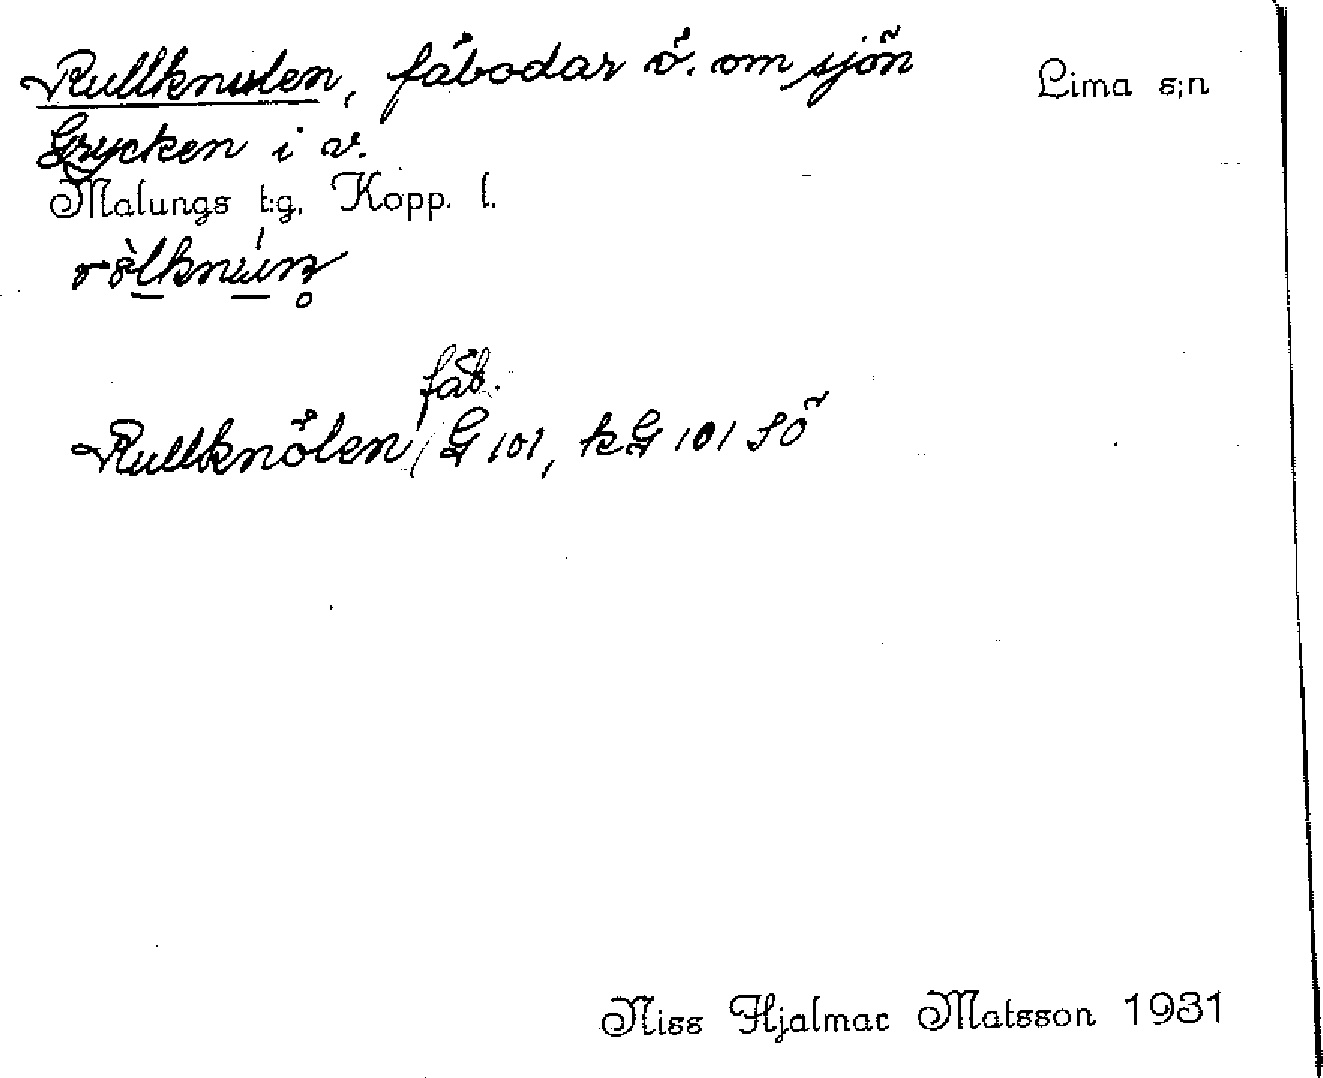 Rullknulen, fäbodar ö. om sjön
Lima s;n
Grycken i v.
Malungs t:g. Kopp. l.
fäb.
Rullknölen G 101, kG 101 SÖ
Niss Hjalmar Matsson 1931